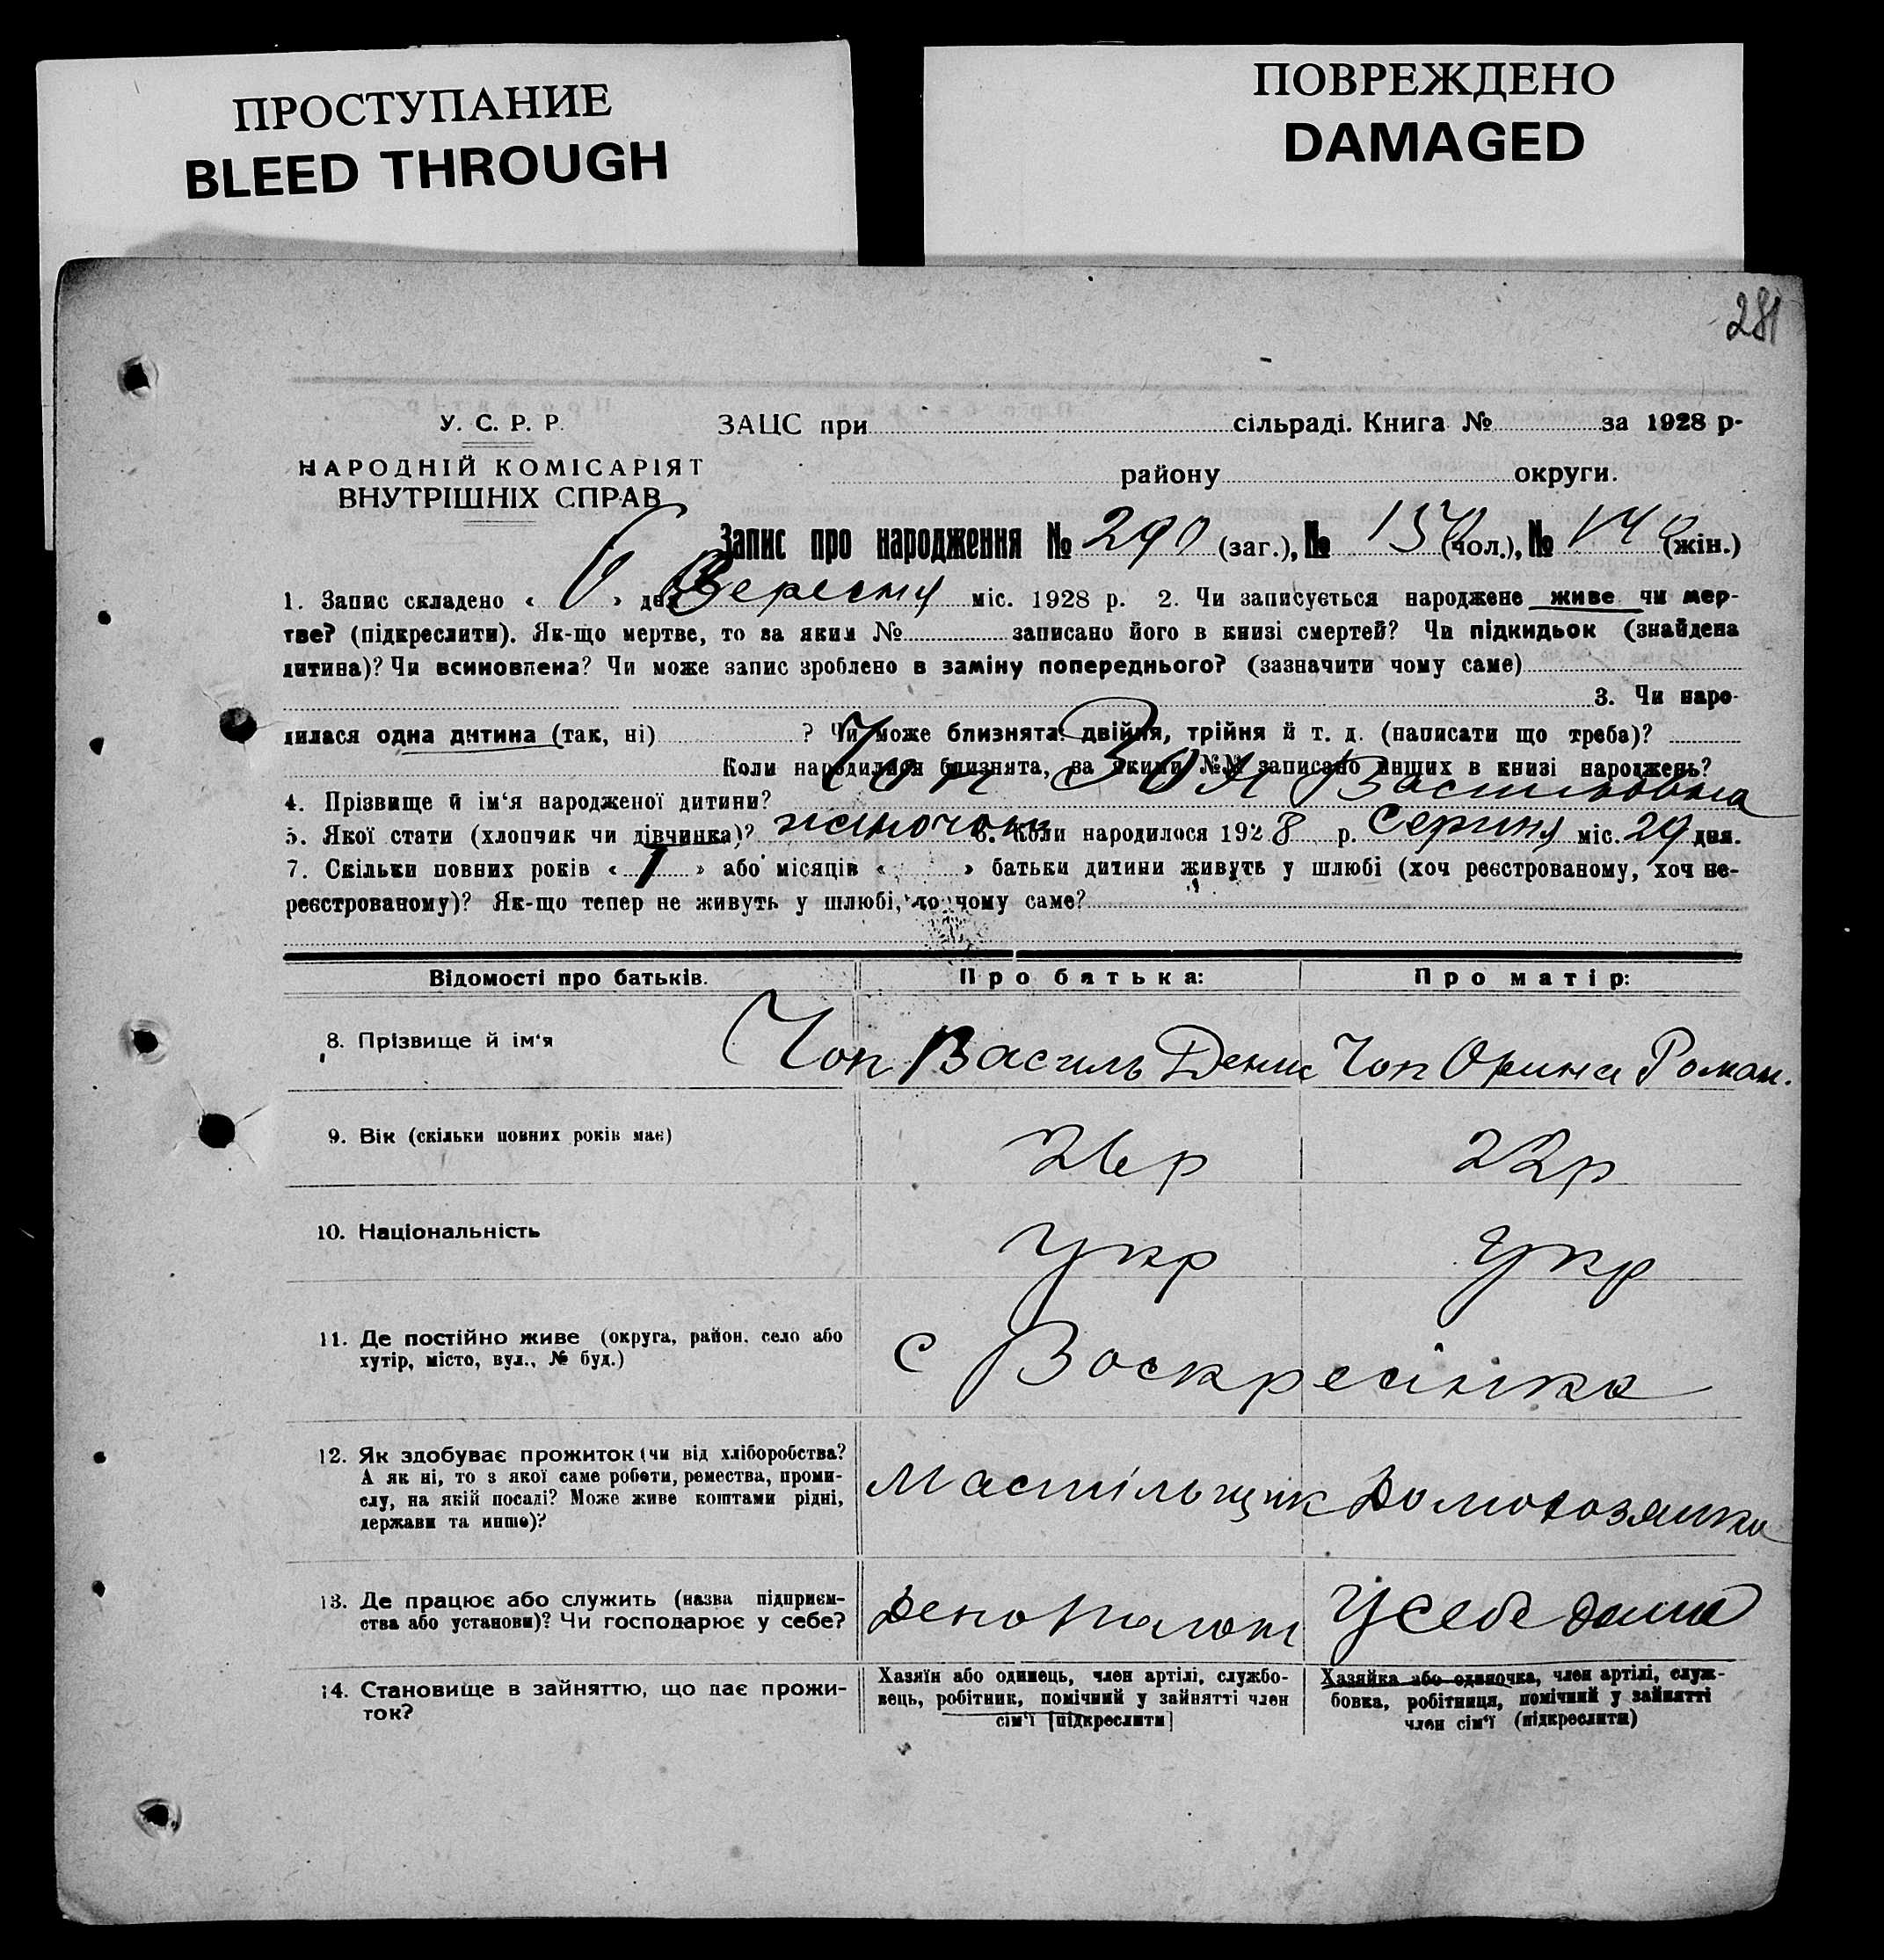 ПРОСТУПАНИЕ
BLEED THROUGH
ПОВРЕЖДЕНО
DAMAGED
281
У. С. Р. Р.
НАРОДНІЙ КОМІСАРІЯТ
ВНУТРІШНІХ СПРАВ
ЗАЦС при сільраді. Книга № за 1928 р-
району округи.
Запис про народження № 290 (заг.), № (чол.), № (жін.)
1. Запис складено « 6 » дня Вересня міс. 1928 р. 2. Чи записується народжене живе чи мер-
тве? (підкреслити). Як-що мертве, то за яким № записано його в книзі смертей? Чи підкидьок (знайдена
дитина)? Чи всиновлена? Чи може запис зроблено в заміну попереднього? (зазначити чому саме)
3. Чи наро-
дилася одна дитина (так, ні) ? Чи може близнята: двійня, трійня й т. д. (написати що треба)?
Коли народилися близнята, за якими №№ записано инших в книзі народжень?
4. Прізвище й ім‘я народженої дитини? Чоп Зоя Васильовна
5. Якої стати (хлопчик чи дівчинка)? жіночои 6. Коли народилося 1928 р. Серпня міс. 29 дня.
7. Скільки повних років « 1 » або місяців « » батьки дитини живуть у шлюбі (хоч реєстрованому, хоч не-
реєстрованому)? Як-що тепер не живуть у шлюбі, то чому саме?
Відомості про батьків. Про батька: Про матір:
8. Прізвище й ім‘я Чоп Василь Денис Чоп Орина Роман.
9. Вік (скільки повних років має) 26р 22р
10. Національність Укр Укр
11. Де постійно живе (округа, район, село або
хутір, місто, вул., № буд.) с Воскресінка
12. Як здобуває прожиток (чи від хліборобства?
А як ні, то з якої саме роботи, ремества, проми-
слу, на якій посаді? Може живе коштами рідні,
держави та инше)?
Мастільщик Домохозяйка
13. Де працює або служить (назва підприєм-
ства або установи)? Чи господарює у себе?
Депо У себе дома
14. Становище в зайняттю, що дає прожи-
ток?
Хазяїн або одинець, член артілі, службо-
вець, робітник, помічний у зайнятті член
сім‘ї [підкреслити]
Хазяйка або одиночка, член артілі, служ-
бовка, робітниця, помічний у зайнятті
член сім‘ї (підкреслити)